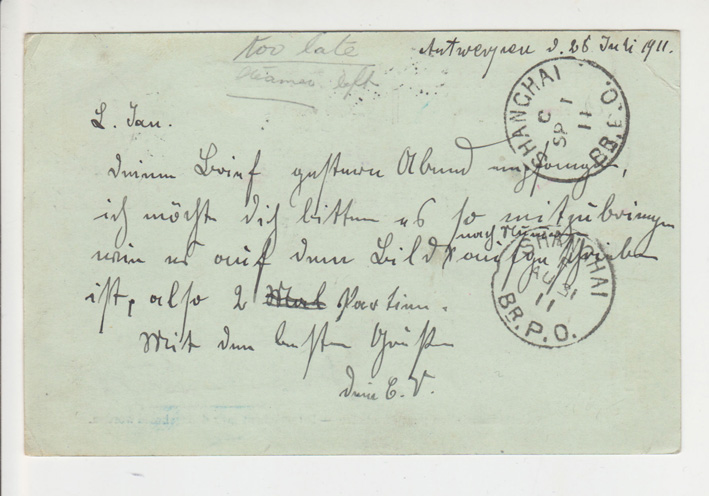 too late
steamer left
Antwerpen d. 26 Juli 1911.
L. Jan.
Deinen Brief gestern Abend empfangen,
ich möchte Dich bitten es so mitzubringen
nach
wie es auf dem Bild aufgeschrieben
ist, also 2 Mal Partien.
Mit den besten Grüßen
Dein E. V.
SHANGHAI
C
SP 1
11
BR. P.O.
SHANGHAI
AU 31
11
BR. P. O.